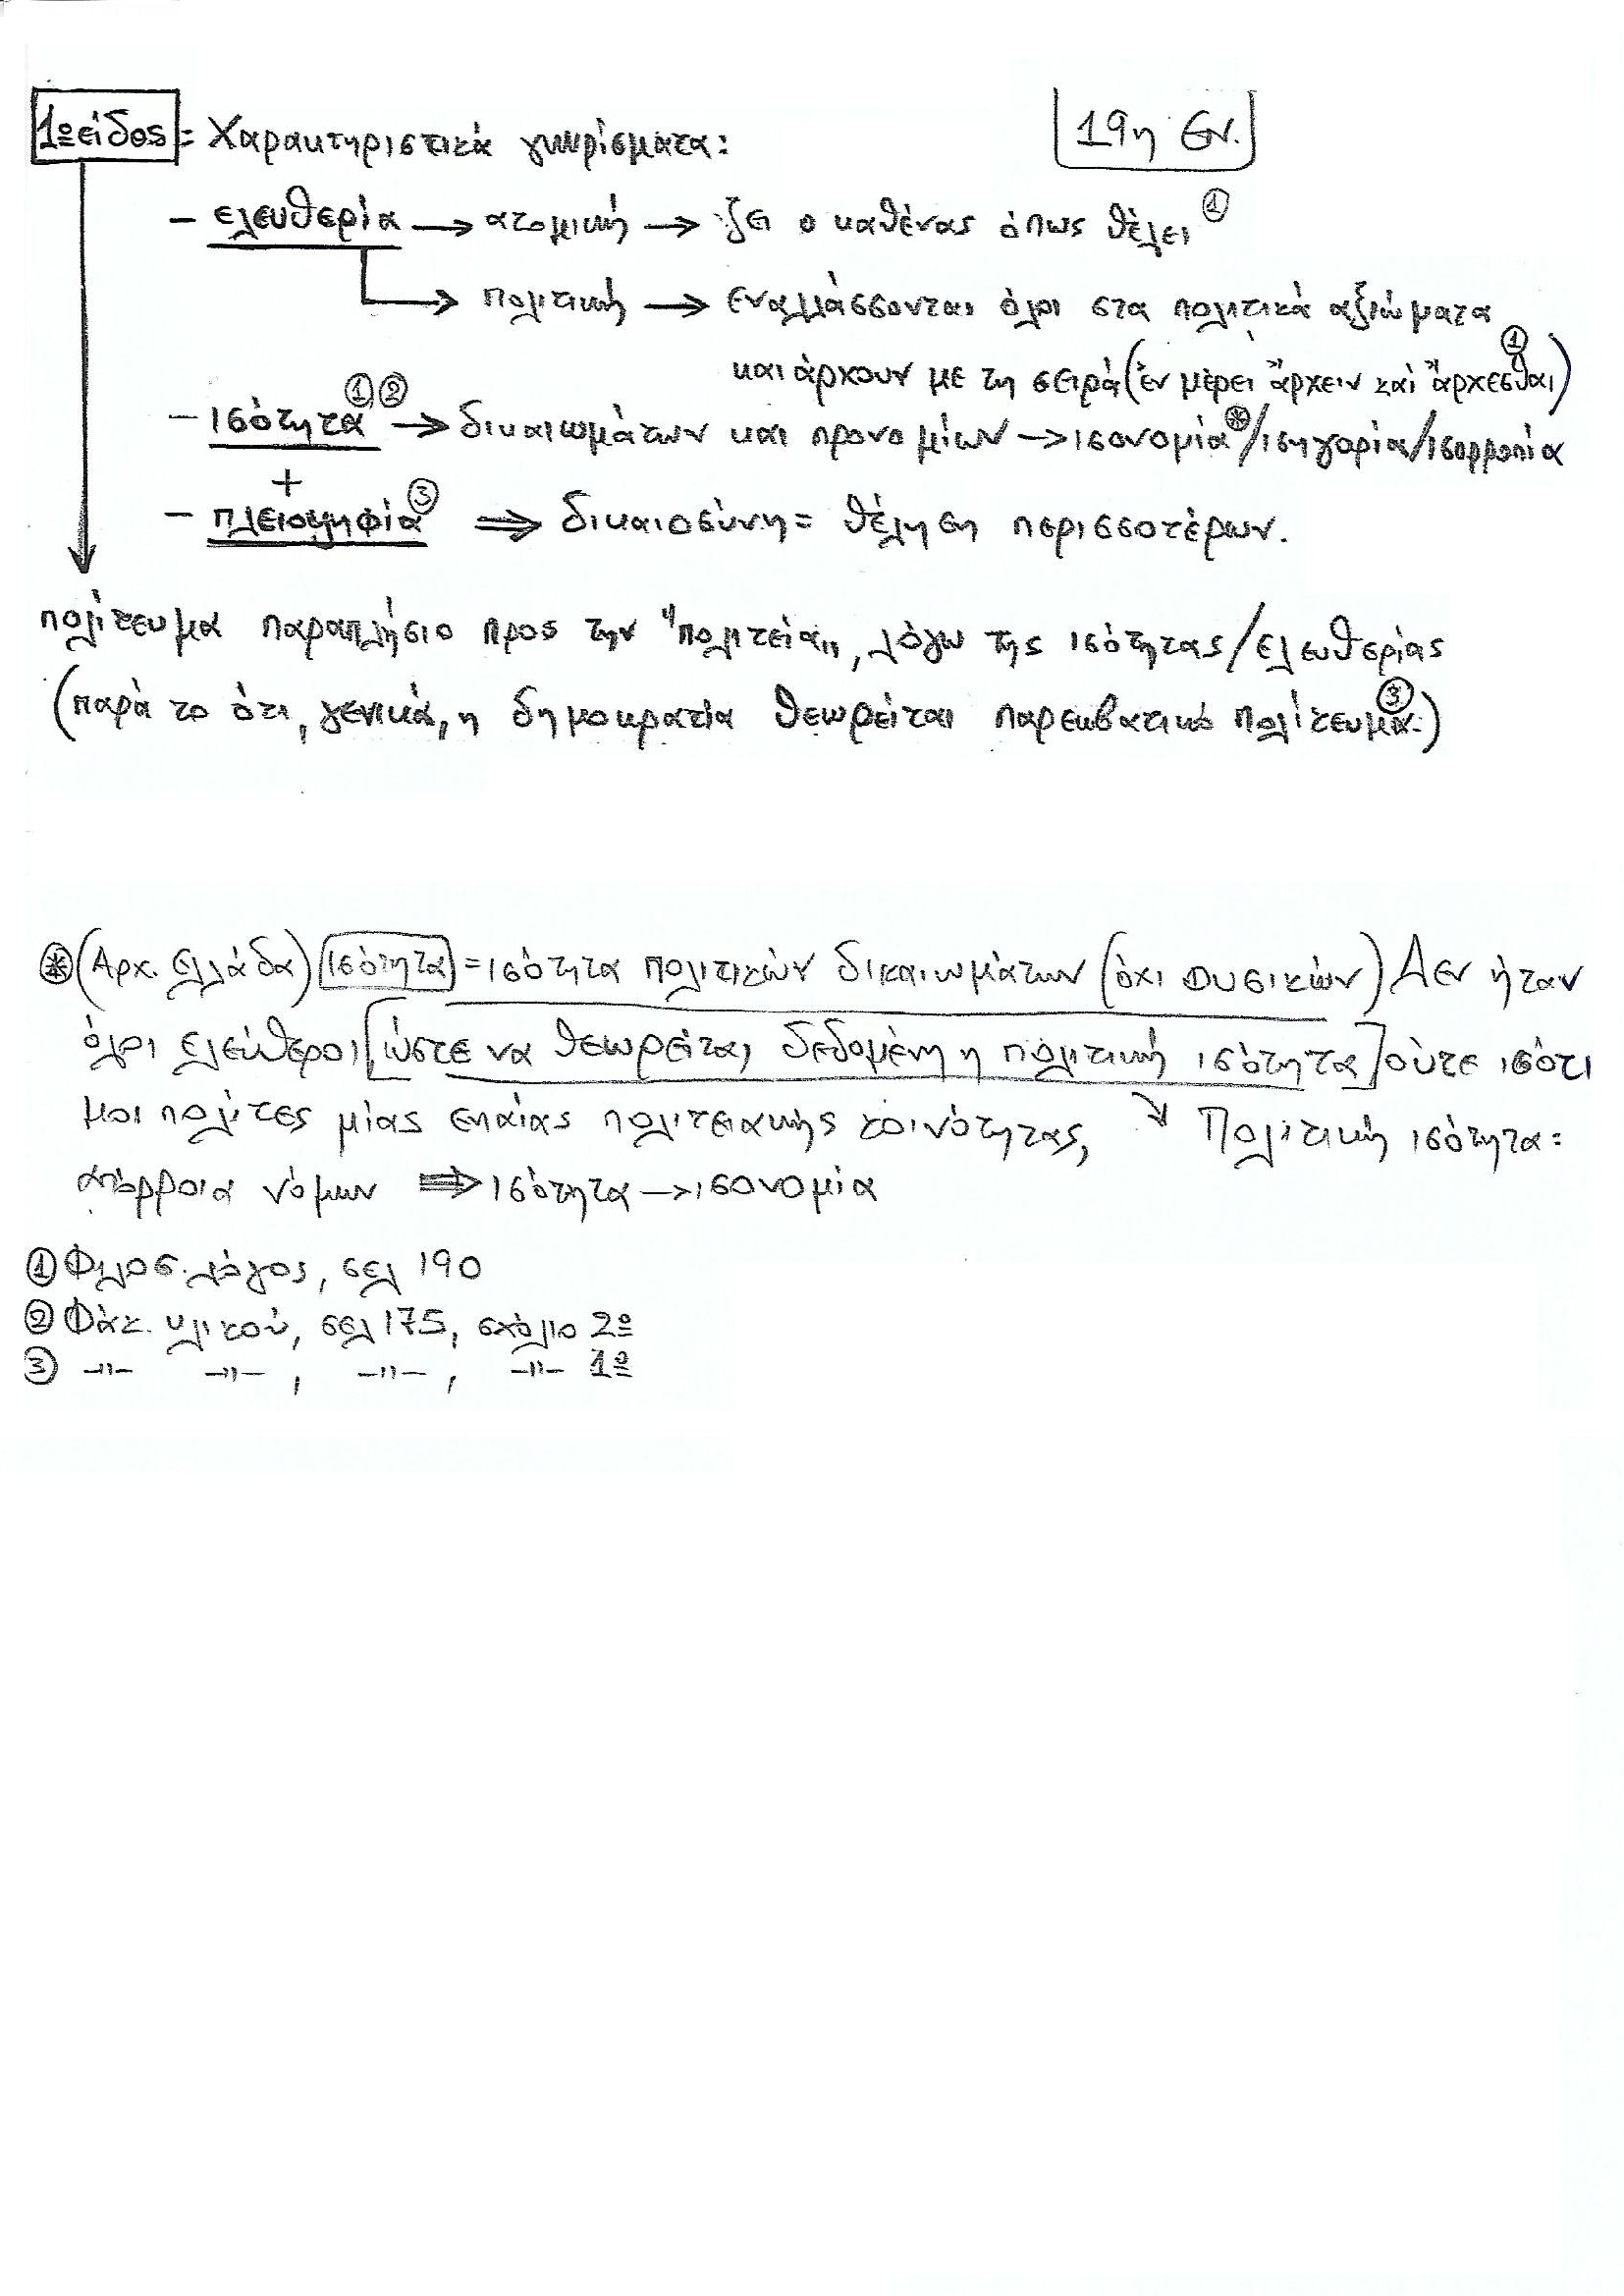 1ο είδος = Χαρακτηριστικά γνωρίσματα: 19η Εν.
- ελευθερία → ατομική → ζει ο καθένας όπως θέλει ①
→ πολιτική → εναλλάσσονται όλοι στα πολιτικά αξιώματα
και άρχουν με τη σειρά (ἐν μέρει ἄρχειν καί ἄρχεσθαι) ①
- ισότητα ①② → δικαιωμάτων και προνομίων → ισονομία ⊛/ισηγορία/ισορροπία
+
- πλειοψηφία ③ ⇒ δικαιοσύνη = θέληση περισσοτέρων.
πολίτευμα παραπλήσιο προς την "πολιτεία", λόγω της ισότητας/ελευθερίας
(παρά το ότι, γενικά, η δημοκρατία θεωρείται παρεκβατικό πολίτευμα ③.)
⊛ (Αρχ. Ελλάδα) ισότητα = ισότητα πολιτικών δικαιωμάτων (όχι φυσικών) Δεν ήταν
όλοι ελεύθεροι [ώστε να θεωρείται δεδομένη η πολιτική ισότητα] ούτε ισότι
μοι πολίτες μίας ενιαίας πολιτειακής κοινότητας, ↘ Πολιτική ισότητα:
απόρροια νόμων ⇒ ισότητα → ισονομία
① Φιλοσ. λόγος, σελ 190
② Φάκ. υλικού, σελ 175, σχόλιο 2ο
③ -//- -//-, -//-, -//- 1ο